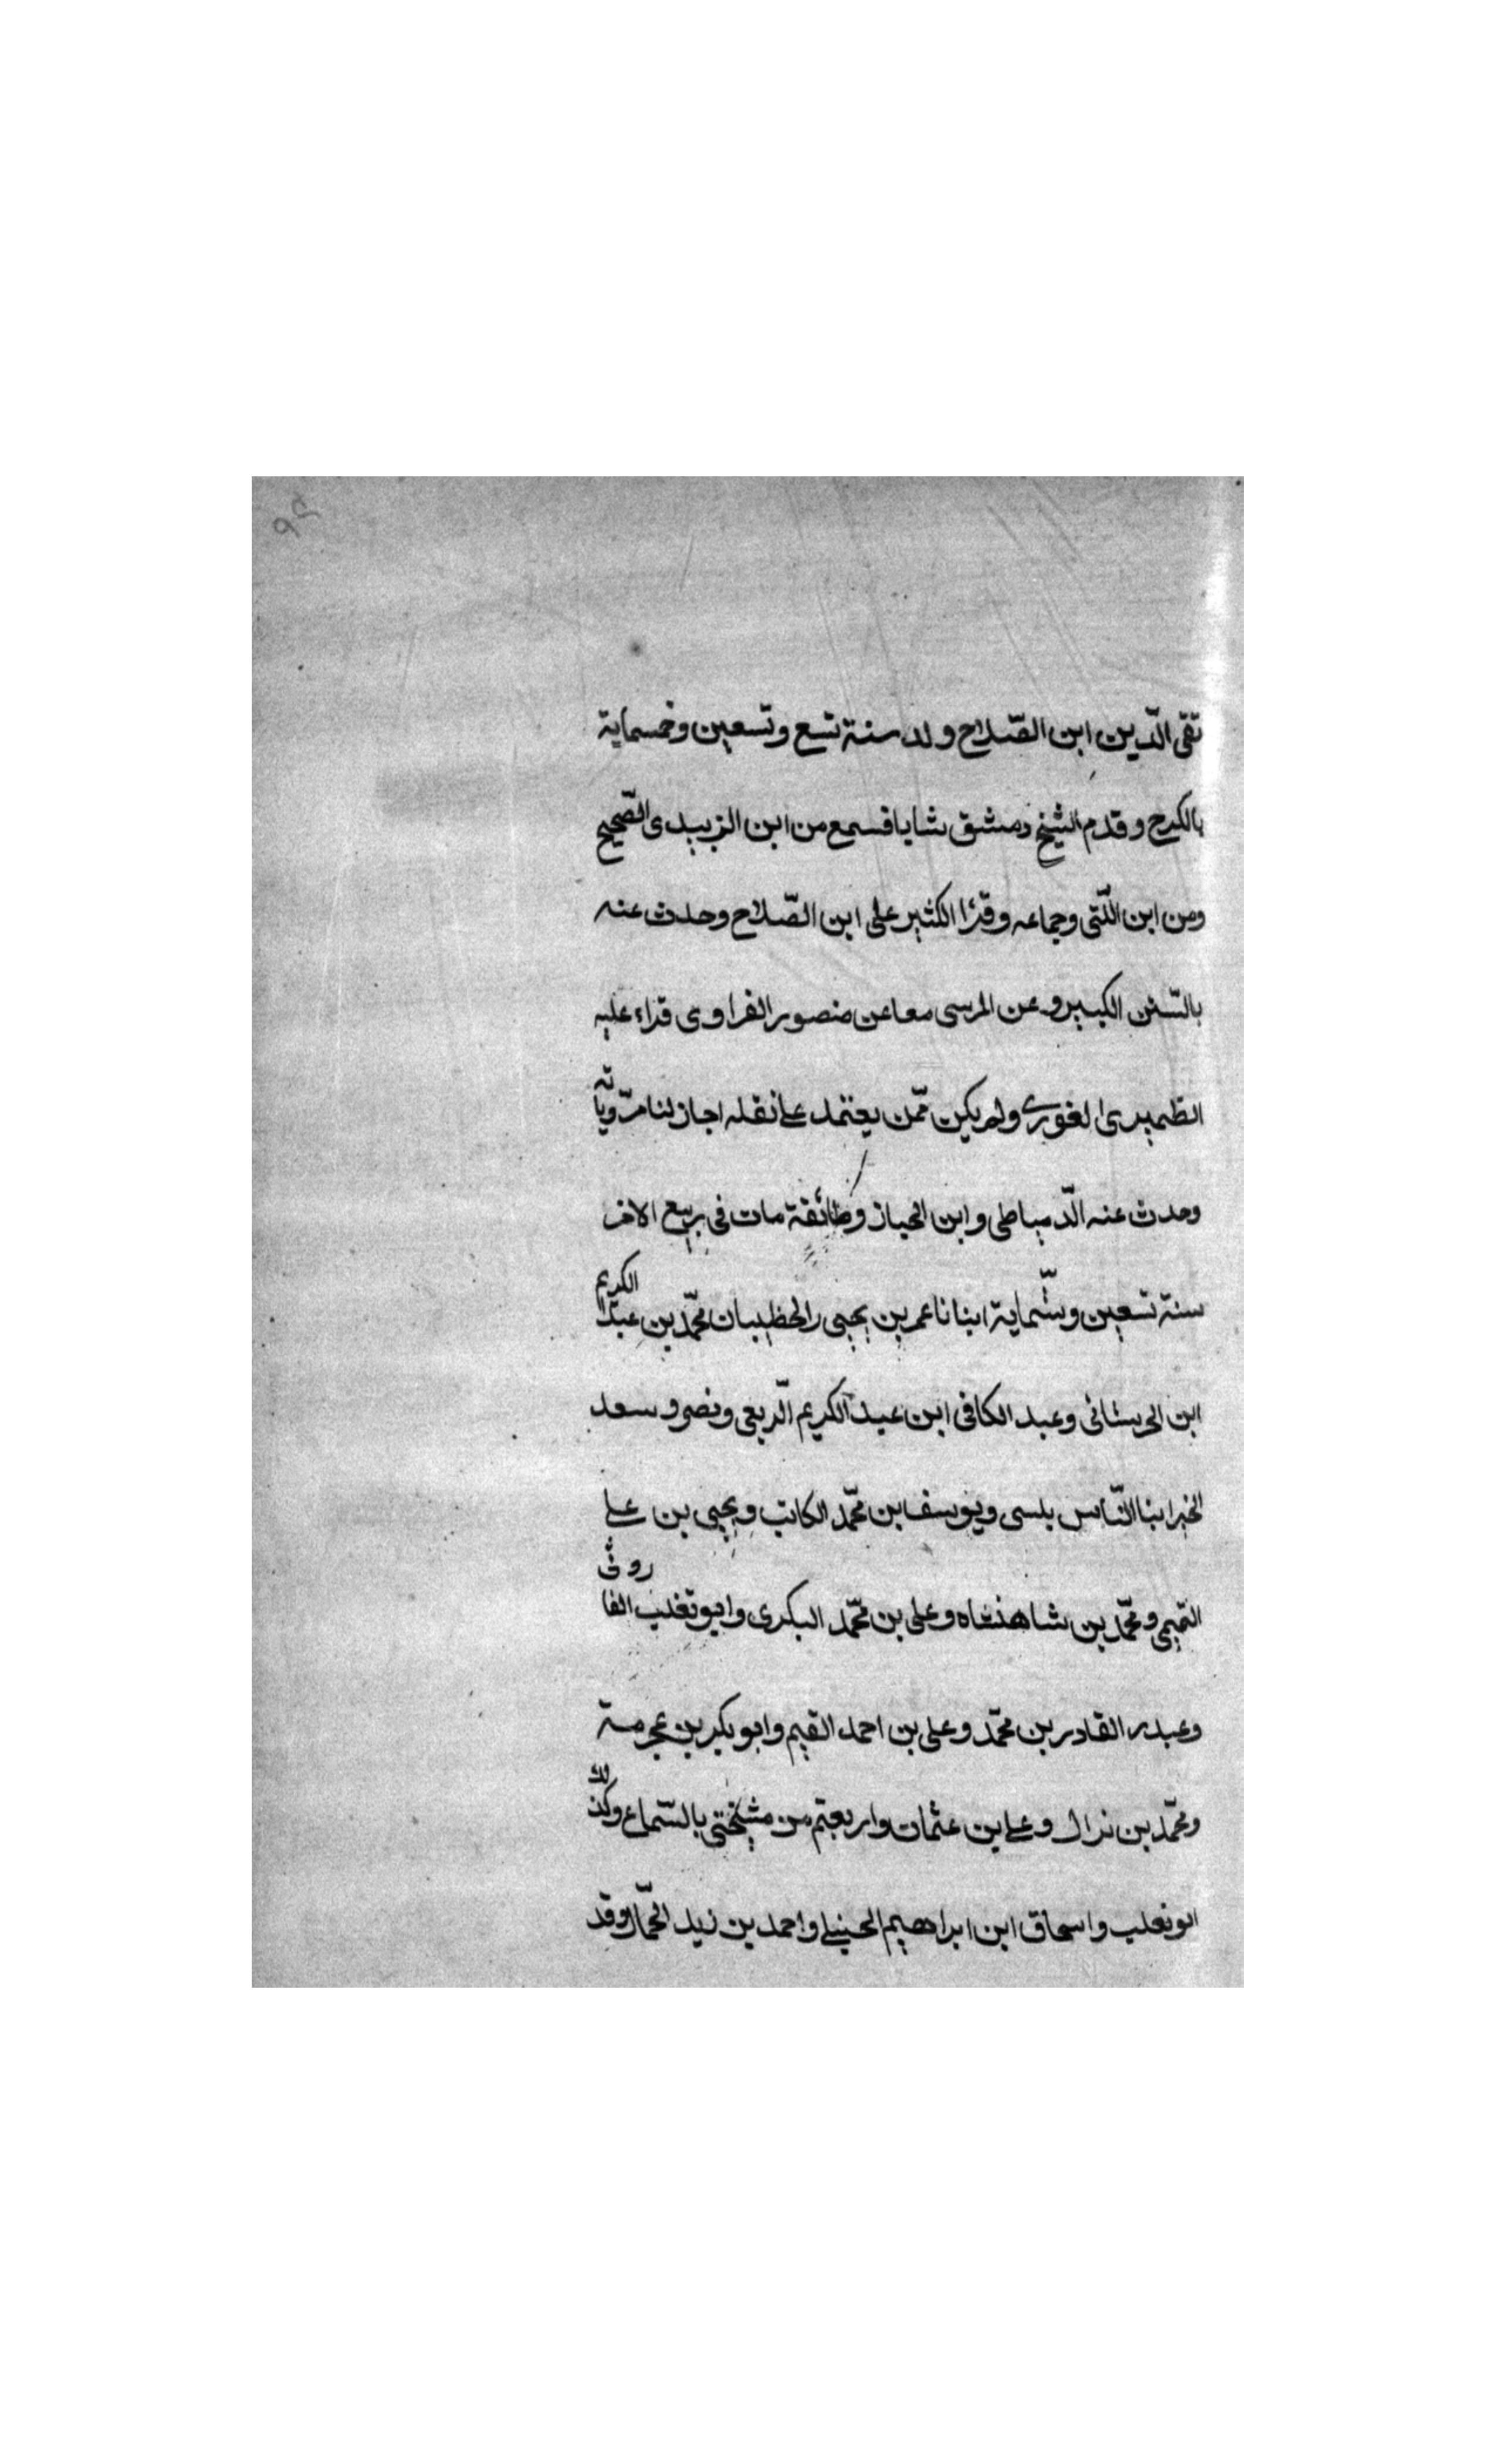 تقى الدّين ابن الصّلاح ولد سنة تسع وتسعين وخمسماية
بالكرج وقدم الشيخ دمشق شابا فسمع من ابن الزبيدى الصّحيح
ومن ابن اللّتى وجماعه وقرٔا الكثير على ابن الصّلاح وحدث عنه
بالسّنن الكبير وعن المرسى معا عن منصور الفراوى قراء عليه
الغورى ولم يكن ممّن يعتمد على نقله اجاز لنا مرّوياته
وحدث عنه الدّمياطى وابن الخباز وطائفة مات فى ربيع الاخر
سنة تسعين وستّماية انبانا عمر بن يحيى والخطيبان محمّد بن عبد الكريم
ابن الحرستانى وعبد الكافى ابن عبد الكريم الرّبعى ونصر وسعد
الخير ابنا النّابلسى ويوسف بن محمّد الكاتب ويحيى بن على
التميمى ومحمّد بن شاهنشاه وعلى بن محمّد البكرى وابو تغلب الفاروثى
وعبد القادر بن محمّد وعلى بن احمد القيم وابو بكر بن عجرمة
ومحمّد بن نزال وعلى بن عثمان واربعتم من مشيختى بالسّماع وكذلك
ابو تغلب واسحاق ابن ابراهيم الحنبلى واحمد بن زيد الجمّال وقد